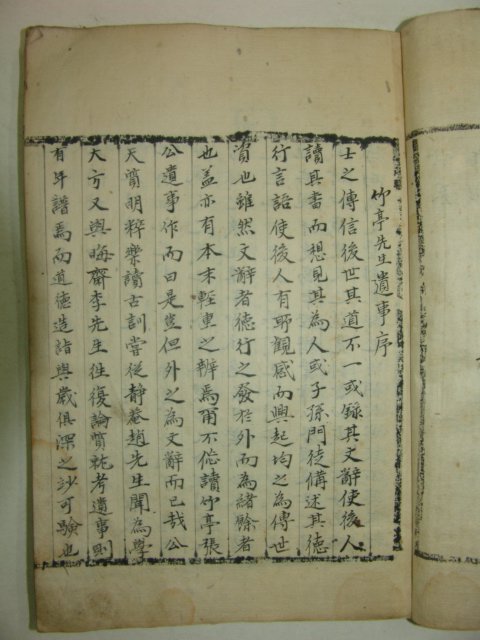 竹亭先生遺事序
士之傳信後世其道不一或録其文辭使後人
讀其書而想見其為人或子孫門徒偹述其德
行言語使後人有所觀感而興起均之為傳世
資也雖然文辭者德行之發扵外而為緒餘者
也盖亦有本末輕重之辨焉甭不佞讀竹亭張
公遺事作而曰是豈但外之為文辭而已哉公
天質明粹樂讀古訓嘗從靜菴趙先生聞為學
大方又與晦齋李先生徃復論質就考遺事則
有年譜焉而道德造詣與歲俱深之妙可驗也